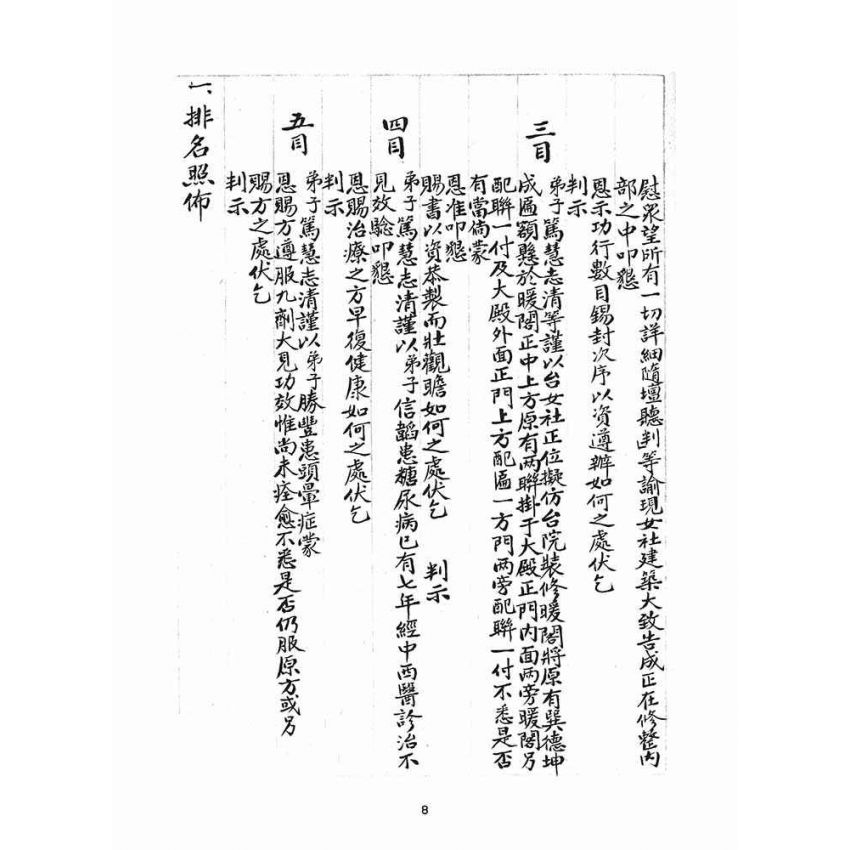 慰眾望所有一切詳細隨壇聽判等諭現女社建築大致告成正在修整內
部之中叩懇
恩示功行數目錫封次序以資遵辦如何之處伏乞
判示
三目
弟子篤慧志清等謹以台女社正位擬仿台院裝修暖閣將原有巽德坤
成匾額懸於暖閣正中上方原有两聯掛于大殿正門內面两旁暖閣另
配聯一付及大殿外面正門上方配匾一方門两旁配聯一付不悉是否
有當倘蒙
恩准叩懇
賜書以資恭製而壯觀瞻如何之處伏乞 判示
四目
弟子篤慧志清謹以弟子信韜患糖尿病已有七年經中西醫診治不
見效驗叩懇
恩賜治療之方早復健康如何之處伏乞
判示
五目
弟子篤慧志清謹以弟子勝豐患頭暈症蒙
恩賜方遵服九劑大見功效惟尚未痊愈不悉是否仍服原方或另
賜方之處伏乞
判示
一、排名照佈
8